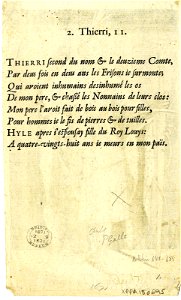 2. Thierri, 11.
THIERRI second du nom & le deuziéme Comte,
Par deux fois en deux ans les Frisons ie surmonte,
Qui avoient inhumains desinhumé les os
De mon pere, & chassé les Nonnains de leur clos:
Mon pere l'avoit fait de bois au bois pour filles,
Pour hommes ie le fis de pierres & de tuilles.
HYLE apres i'espousay fille du Roy Louys:
A quatre-vingts-huit ans ie meurs en mon païs.